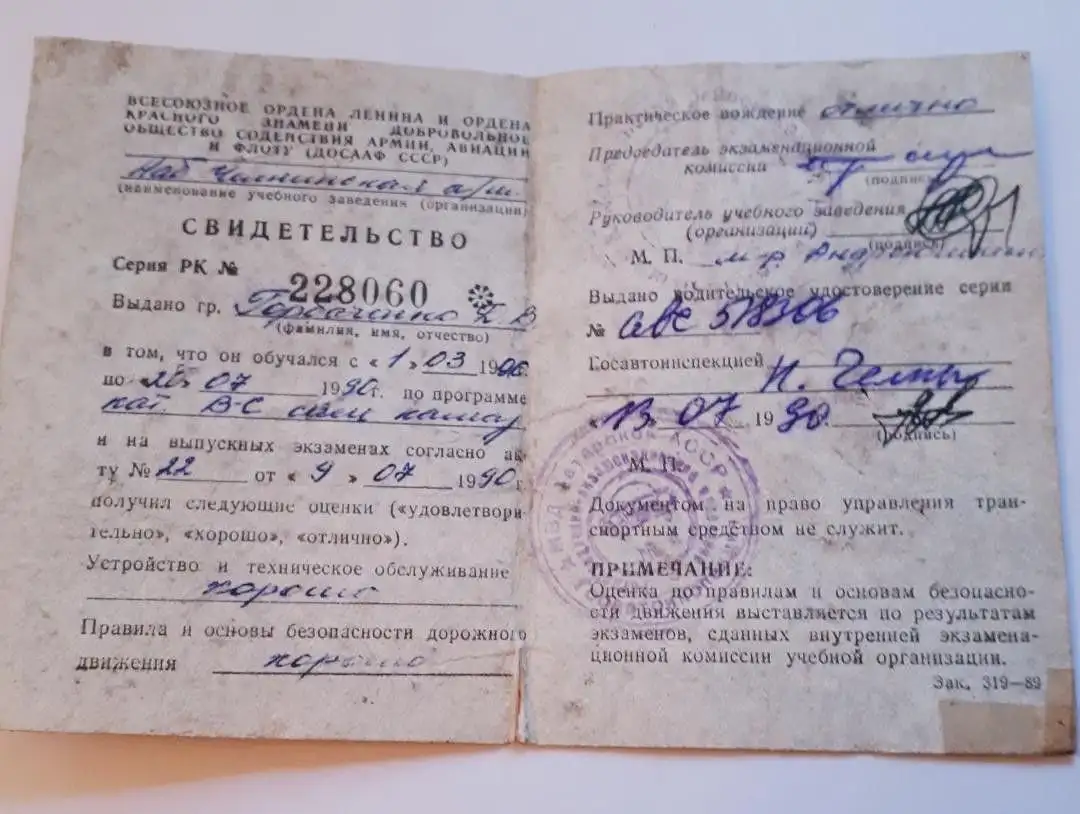 ВСЕСОЮЗНОЕ ОРДЕНА ЛЕНИНА И ОРДЕНА
КРАСНОГО ЗНАМЕНИ ДОБРОВОЛЬНОЕ
ОБЩЕСТВО СОДЕЙСТВИЯ АРМИИ, АВИАЦИИ
И ФЛОТУ (ДОСААФ СССР)
Наб Челнинская а/ш
(наименование учебного заведения (организации)
СВИДЕТЕЛЬСТВО
Серия РК № 228060
Выдано гр. Горбаченко В
(фамилия, имя, отчество)
в том, что он обучался с «1» 03 1990
по «20» 07 1990г. по программе
кат. В-С камаз
и на выпускных экзаменах согласно ак-
ту № 22 от «9» 07 1990г.
получил следующие оценки («удовлетвори-
тельно», «хорошо», «отлично»).
Устройство и техническое обслуживание
хорошо
Правила и основы безопасности дорожного
движения хорошо
Практическое вождение отлично
Председатель экзаменационной
комиссии
(подпись)
Руководитель учебного заведения
(организации)
(подпись)
М. П.
Выдано водительское удостоверение серии
№ АВС 518306
Госавтоинспекцией
Н. Челны
«13» 07 1990.
(подпись)
М. П.
Документом на право управления тран-
спортным средством не служит.
ПРИМЕЧАНИЕ:
Оценка по правилам и основам безопасно-
сти движения выставляется по результатам
экзаменов, сданных внутренней экзамена-
ционной комиссии учебной организации.
Зак. 319—89